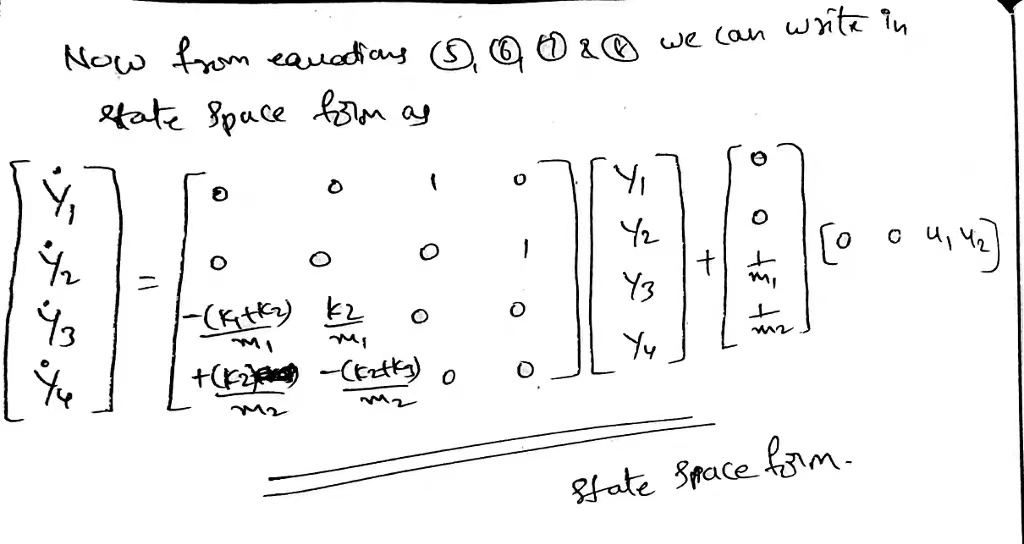 Now from equations ⑤, ⑥, ⑦ & ⑧ we can write in
state space form as
[Ẏ1 Ẏ2 Ẏ3 Ẏ4] = [0 0 1 0; 0 0 0 1; -(K1+K2)/m1 K2/m1 0 0; +(K2)/m2 -(K2+K3)/m2 0 0] [Y1 Y2 Y3 Y4] + [0 0 1/m1 1/m2] [0 0 u1 u2]
state space form.